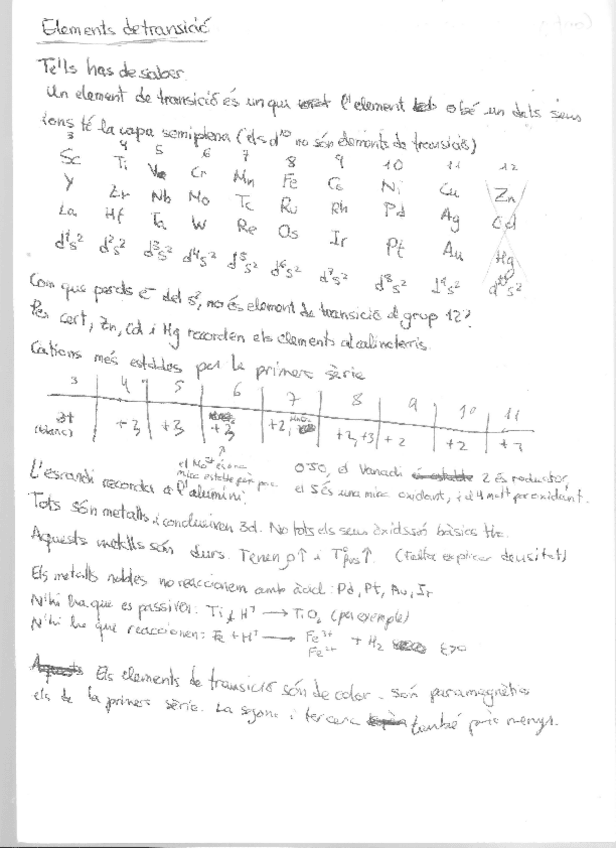 Elements de transició
Te'ls has de saber.
Un element de transició és un qui l'element o bé un dels seus
ions té la capa semiplena (els d¹⁰ no són elements de transició)
3 4 5 6 7 8 9 10 11 12
Sc Ti Va Cr Mn Fe Co Ni Cu Zn
Y Zr Nb Mo Tc Ru Rh Pd Ag Cd
La Hf Ta W Re Os Ir Pt Au Hg
d¹s² d²s² d³s² d⁴s² d⁵s² d⁶s² d⁷s² d⁸s² d⁹s² d¹⁰s²
Com que perds e⁻ del s², no és element de transició el grup 12?
Per cert, Zn, Cd i Hg recorden els elements alcalinoterris.
Cations més estables per la primera sèrie
3 4 5 6 7 8 9 10 11
3+ +3 +3 +3 +2, +2,+3 +2 +2 +2
(blanc)
el és una
mica estable
L'escandi recorda a l'alumini.
OJO, el Vanadi 2 és reductor,
el 5 és una mica oxidant, i el 4 molt poc oxidant.
Tots són metalls, i condueixen 3d. No tots els seus òxids són bàsics
Aquests metalls són durs. Tenen ρ↑ i T fus↑. (Faltar explicar densitat)
Els metalls nobles no reaccionem amb àcid: Pd, Pt, Au, Ir
N'hi ha que es passiven: Ti + H⁺ → TiO₂ (per exemple)
N'hi ha que reaccionen: Fe + H⁺ → Fe³⁺ + H₂ ε>0
Fe²⁺
Els elements de transició són de color. Són paramagnètics
els de la primera sèrie. La segona i tercera també però menys.